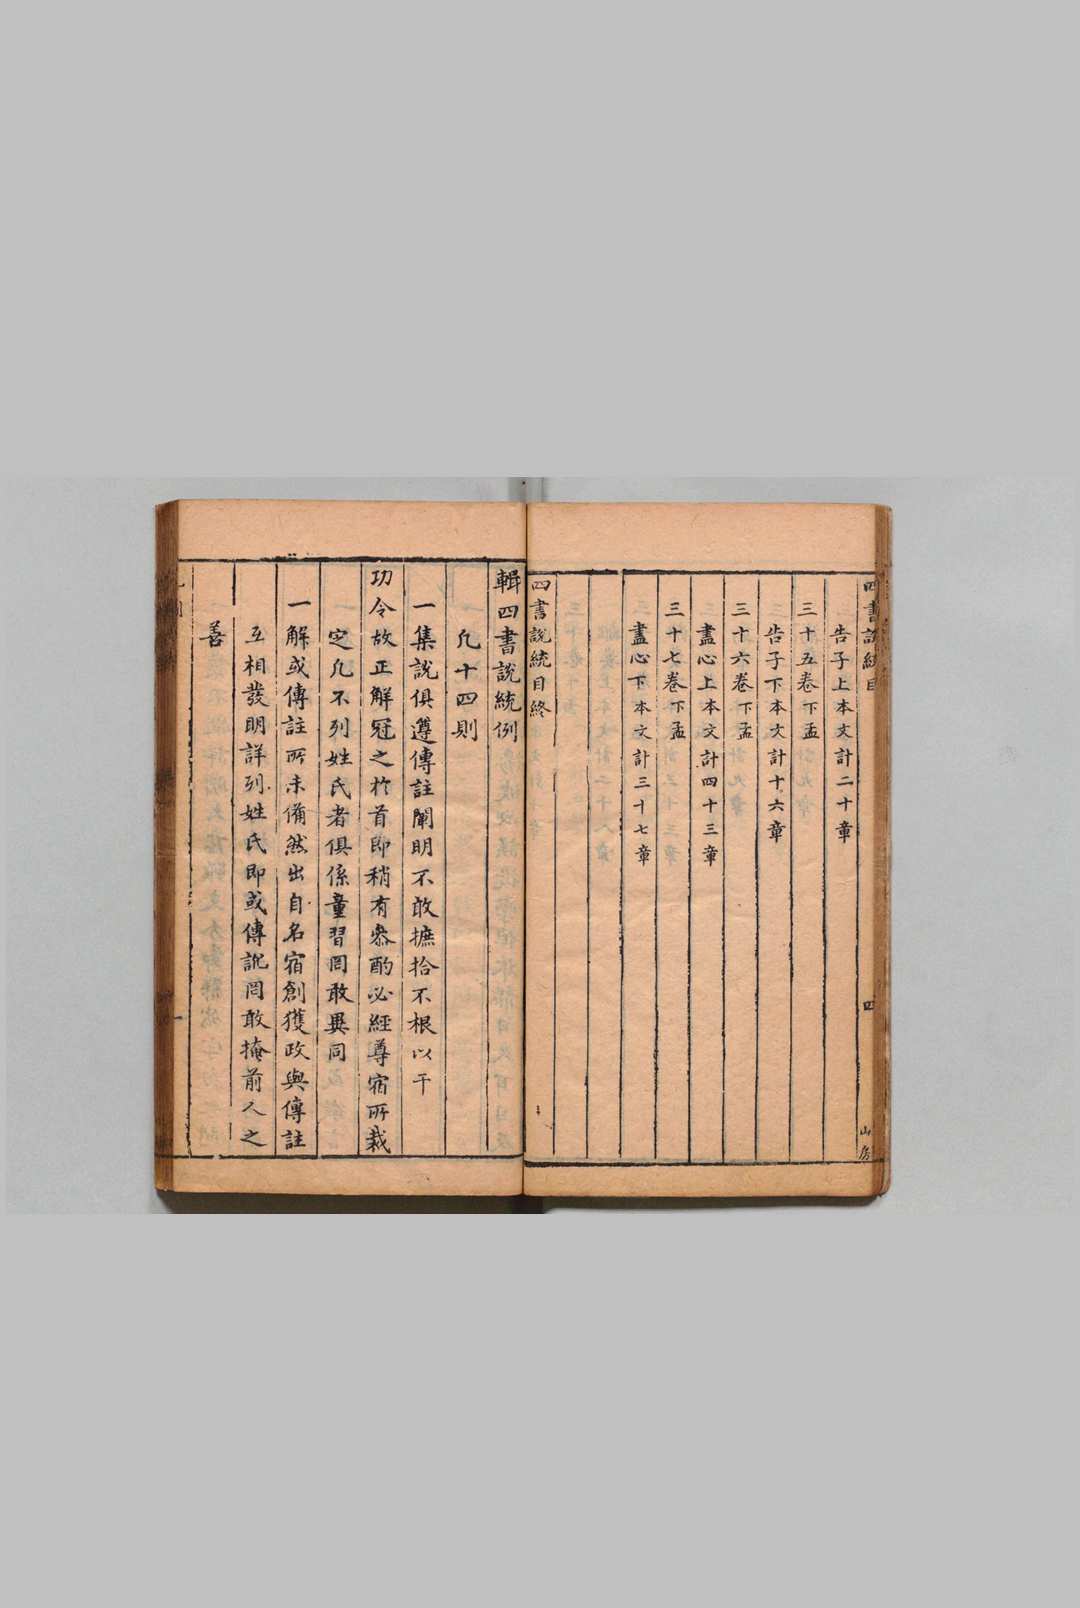 四書說統目
四
山房
告子上本文計二十章
三十五卷下孟
告子下本文計十六章
三十六卷下孟
盡心上本文計四十三章
三十七卷下孟
盡心下本文計三十七章
四書說統目終
輯四書說統例
凡十四則
一集說俱遵傳註闡明不敢摭拾不根以干
功令故正解冠之於首即稍有叅酌必經尊宿所裁
定凡不列姓氏者俱係童習罔敢異同
一解或傳註所未備然出自名宿創獲政與傳註
互相發明詳列姓氏即或傳訛罔敢掩前人之
善